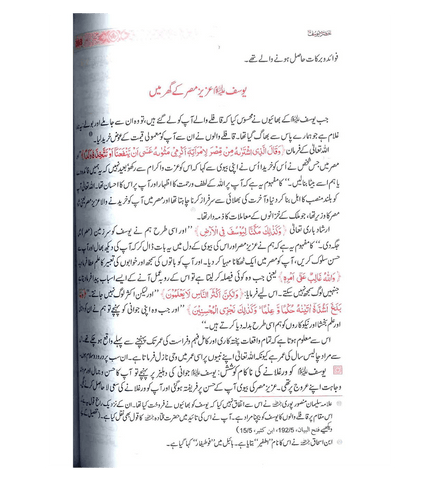 فوائد و برکات حاصل ہونے والے تھے۔
یوسف علیہ السلام عزیز مصر کے گھر میں
جب یوسف علیہ السلام کے بھائیوں نے محسوس کیا کہ قافلے والے آپ کو لے گئے ہیں، تو وہ ان سے جا ملے اور بولے یہ
غلام ہے جو ہمارے پاس سے بھاگ گیا تھا۔ قافلے والوں نے ان سے آپ کو معمولی قیمت کے عوض خرید لیا۔
اللہ تعالیٰ کے فرمان ﴿وَقَالَ الَّذِي اشْتَرٰىهُ مِنْ مِّصْرَ لِامْرَاَتِهٖٓ اَكْرِمِيْ مَثْوٰىهُ عَسٰٓى اَنْ يَّنْفَعَنَآ اَوْ نَتَّخِذَهٗ وَلَدًا﴾
مصر میں جس شخص نے اُس کو خریدا اُس نے اپنی بیوی سے کہا کہ اس کو عزت و اکرام سے رکھو بعید نہیں کہ یہ ہمیں فائدہ دے
یا ہم اسے بیٹا بنا لیں۔“ کا مفہوم یہ ہے کہ یہ آپ پر اللہ کے لطف و رحمت کا اظہار اور آپ پر اس کا احسان تھا۔ اللہ تعالیٰ آپ
کو بلند منصب کا اہل بنا کر دنیا و آخرت کی بھلائی سے سرفراز کرنا چاہتا تھا اور مصر میں آپ کو خریدنے والا عزیز مصر یعنی
مصر کا وزیر تھا، جو ملک کے خزانوں کے معاملات کا ذمہ دار تھا۔
ارشاد باری تعالیٰ ﴿وَكَذٰلِكَ مَكَّنَّا لِيُوْسُفَ فِي الْاَرْضِ﴾ ”اور اسی طرح ہم نے یوسف کو سرزمین
جگہ دی۔“ کا مفہوم یہ ہے کہ ہم نے عزیز مصر اور اس کی بیوی کے دل میں یہ بات ڈال کر کہ آپ کی دیکھ بھال اور آپ سے
حسن سلوک کریں، آپ کو مصر میں ایک ٹھکانا مہیا کر دیا۔ اور آپ کو باتوں کی سمجھ اور خوابوں کی تعبیر کا علم
﴿وَاللّٰهُ غَالِبٌ عَلٰٓى اَمْرِهٖ﴾ یعنی جب وہ کوئی فیصلہ کر لیتا ہے تو اس کے روبہ عمل آنے کے ایسے اسباب پیدا
جنہیں لوگ سمجھ نہیں سکتے۔ اس لیے فرمایا: ﴿وَلٰكِنَّ اَكْثَرَ النَّاسِ لَا يَعْلَمُوْنَ﴾ ”اور لیکن اکثر لوگ نہیں جانتے۔“
بَلَغَ اَشُدَّهٗٓ اٰتَيْنٰهُ حُكْمًا وَّعِلْمًا ۭ وَكَذٰلِكَ نَجْزِي الْمُحْسِنِيْنَ﴾ ”اور جب وہ اپنی جوانی کو پہنچے تو ہم نے ان
اور علم بخشا اور نیکو کاروں کو ہم اسی طرح بدلہ دیا کرتے ہیں۔“
اس سے معلوم ہوتا ہے کہ تمام واقعات پختہ کاری اور کامل فہم و فراست کی عمر تک پہنچنے سے پہلے واقع
سے مراد چالیس سال کی عمر ہے کیونکہ اللہ تعالیٰ اپنے نبیوں پر اسی عمر میں وحی نازل فرماتا ہے۔
یوسف علیہ السلام کو ورغلانے کی ناکام کوشش: یوسف علیہ السلام جوانی کی دہلیز پر پہنچے تو آپ کا حسن و
وجاہت اپنے عروج پر تھی۔ عزیز مصر کی بیوی آپ کے حسن پر فریفتہ ہو گئی اور آپ کو ورغلانے کی سعی لا حاصل
علامہ سلیمان منصور پوری رحمہ اللہ نے اس سے اتفاق نہیں کیا کہ یوسف کو بھائیوں نے فروخت کیا تھا۔
اس مقام پر قافلے والوں کا یوسف کو بیچنا مراد ہے۔ آپ نے اس کی تائید میں حضرت قتادہ رحمہ اللہ کا قول بھی نقل کیا ہے۔
دیکھیے فتح البيان، 192/5، ابن كثير، 15/5)
ابن اسحاق رحمہ اللہ نے اس کا نام ”اطفیر“ بتایا ہے۔ بائبل میں ”فوطیفار“ کہا گیا ہے۔